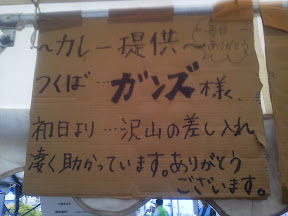 毎日
ありがとう
~カレー提供~
つくば…ガンズ様
初日より…沢山の差し入れ
凄く助かっています。ありがとう
ございます。